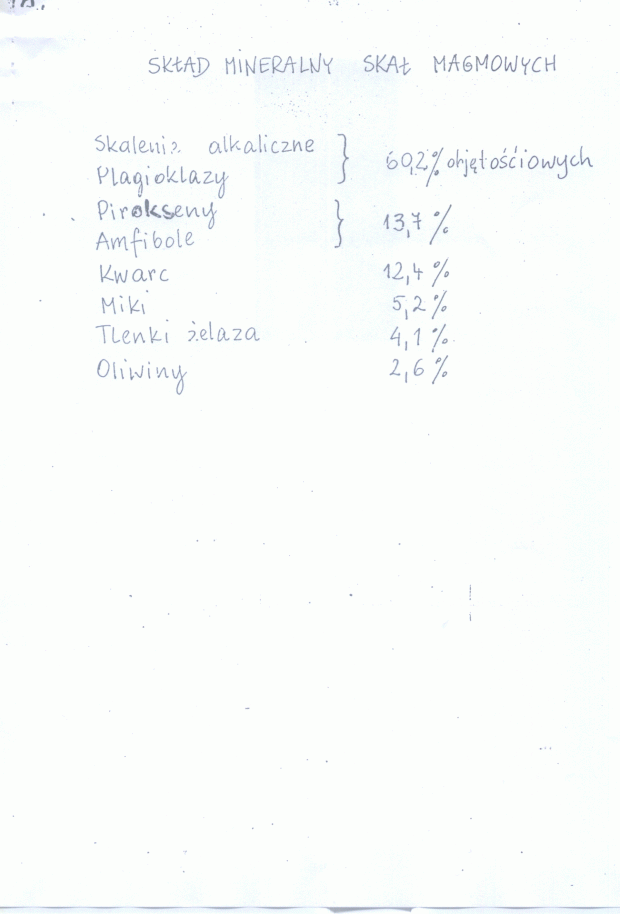 SKŁAD MINERALNY SKAŁ MAGMOWYCH
Skalenie alkaliczne } 60,2% objętośćiowych
Plagioklazy
Pirokseny } 13,7%
Amfibole
Kwarc 12,4%
Miki 5,2%
Tlenki żelaza 4,1%
Oliwiny 2,6%